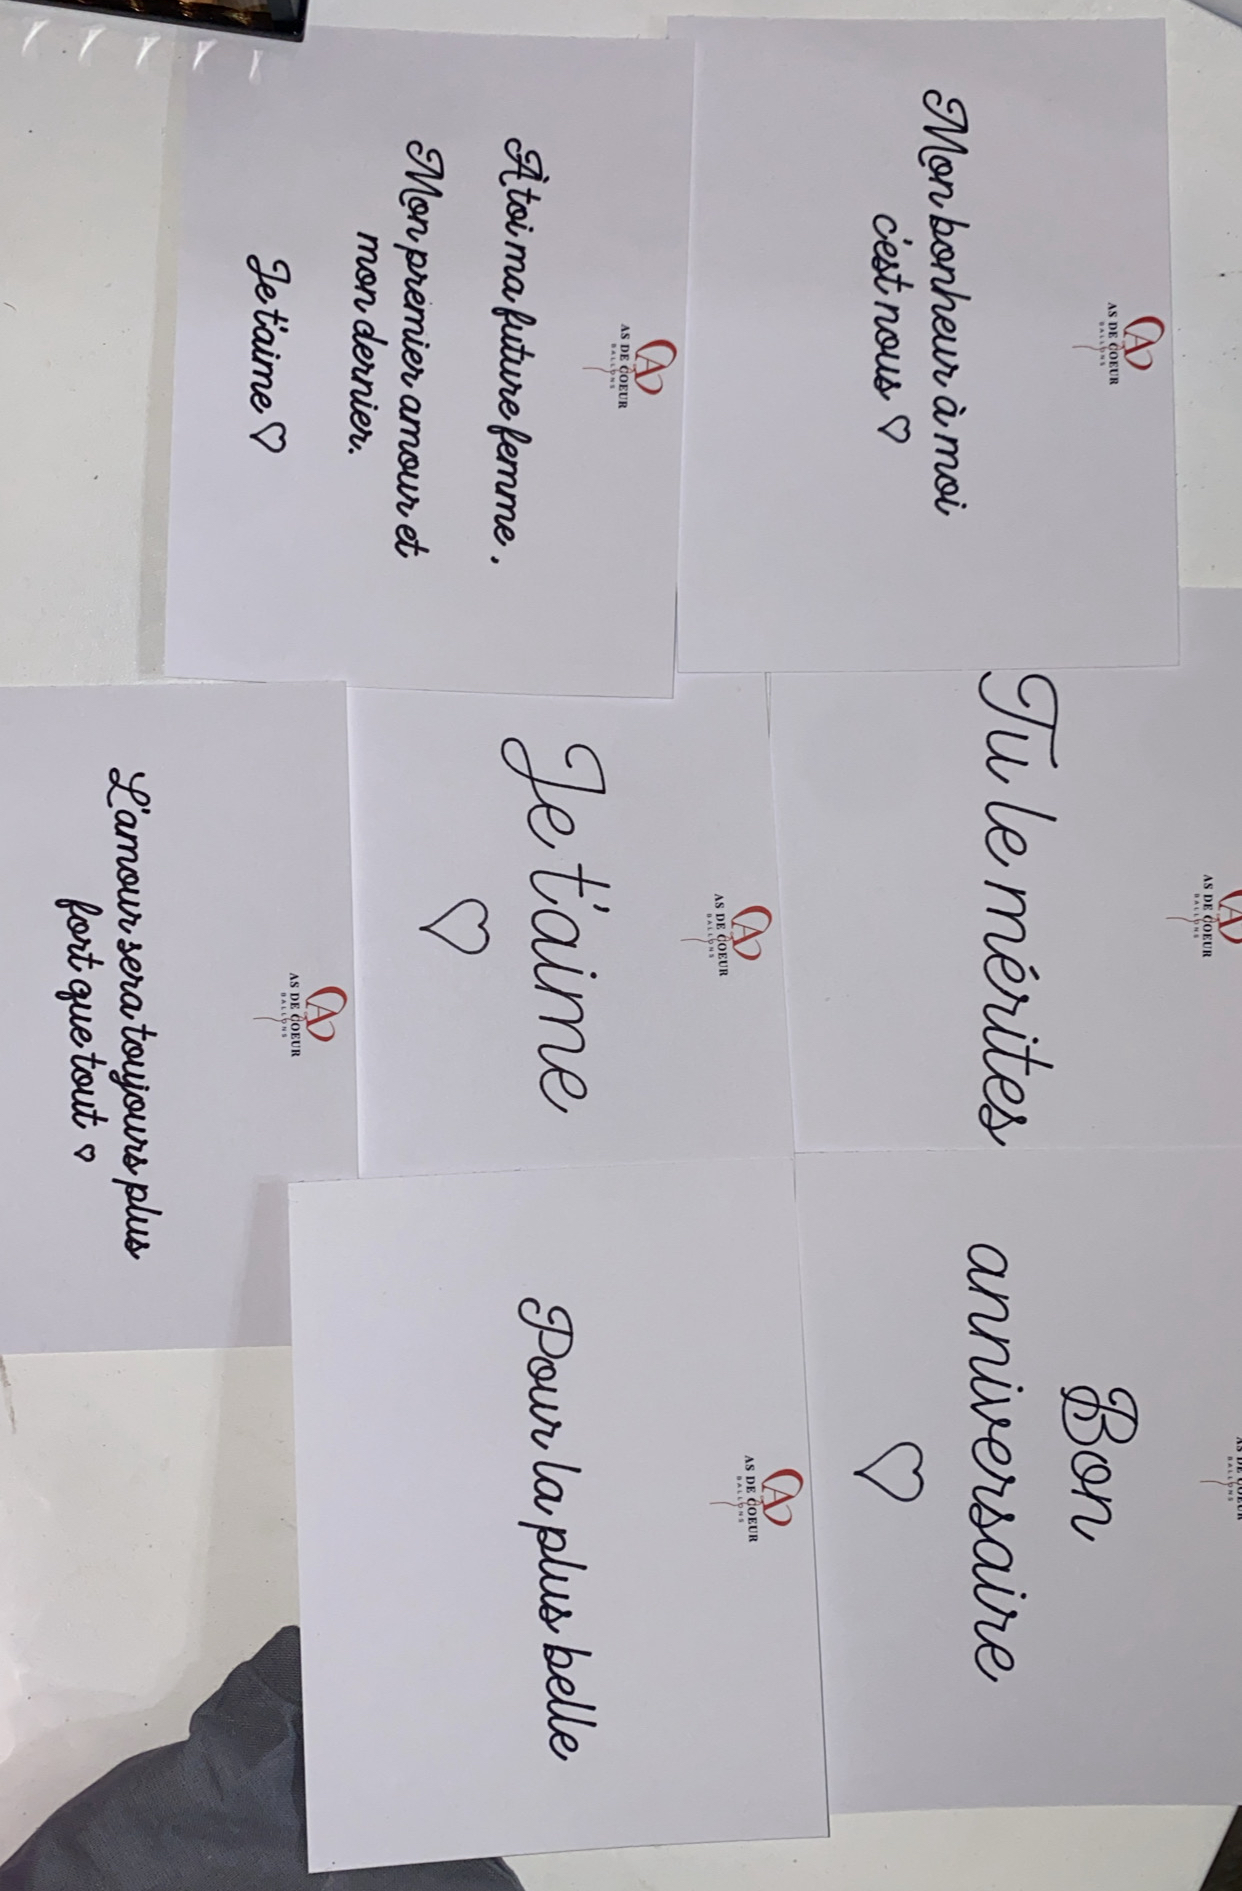 AS DE COEUR
BALLONS
Mon bonheur à moi
c'est nous ♡
AS DE COEUR
BALLONS
À toi ma future femme .
Mon premier amour et
mon dernier.
Je t'aime ♡
AS DE COEUR
BALLONS
Tu le mérites
AS DE COEUR
BALLONS
Je t'aime
♡
AS DE COEUR
BALLONS
L'amour sera toujours plus
fort que tout ♡
AS DE COEUR
BALLONS
Bon
anniversaire
♡
AS DE COEUR
BALLONS
Pour la plus belle